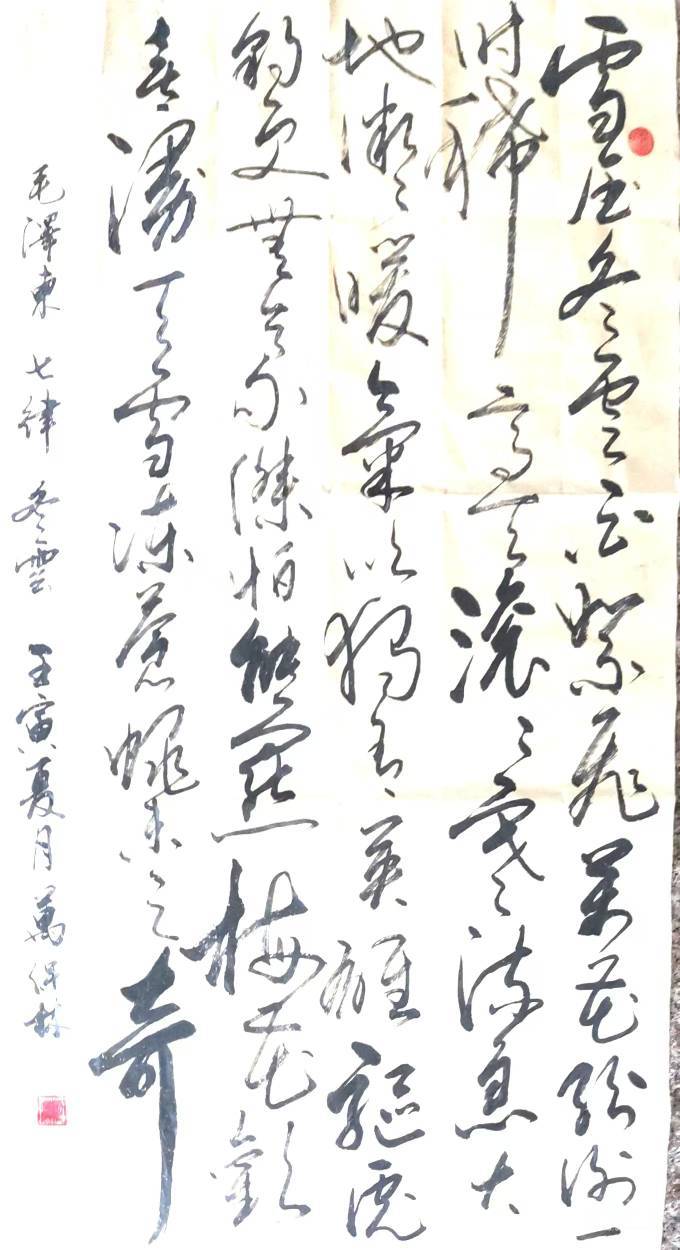 雪压冬雲白絮飛萬花紛謝一
时稀高天滚々寒流急大
地微々暖氣吹獨有英雄驅虎
豹更無豪傑怕熊羆梅花歡
喜漫天雪凍蒼蠅未足奇
毛澤東 七律 冬雲 壬寅夏月 萬保林